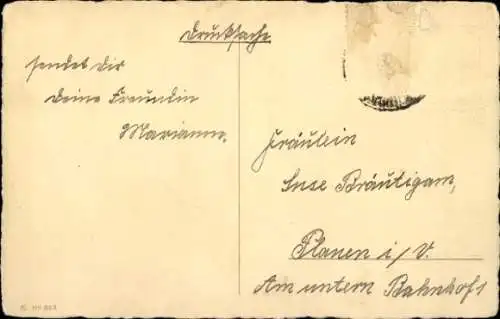 Drucksache
sendet dir
deine Freundin
Marianne.
Fräulein
Suse Bräutigam,
Plauen i/V.
Am untern Bahnhof 1